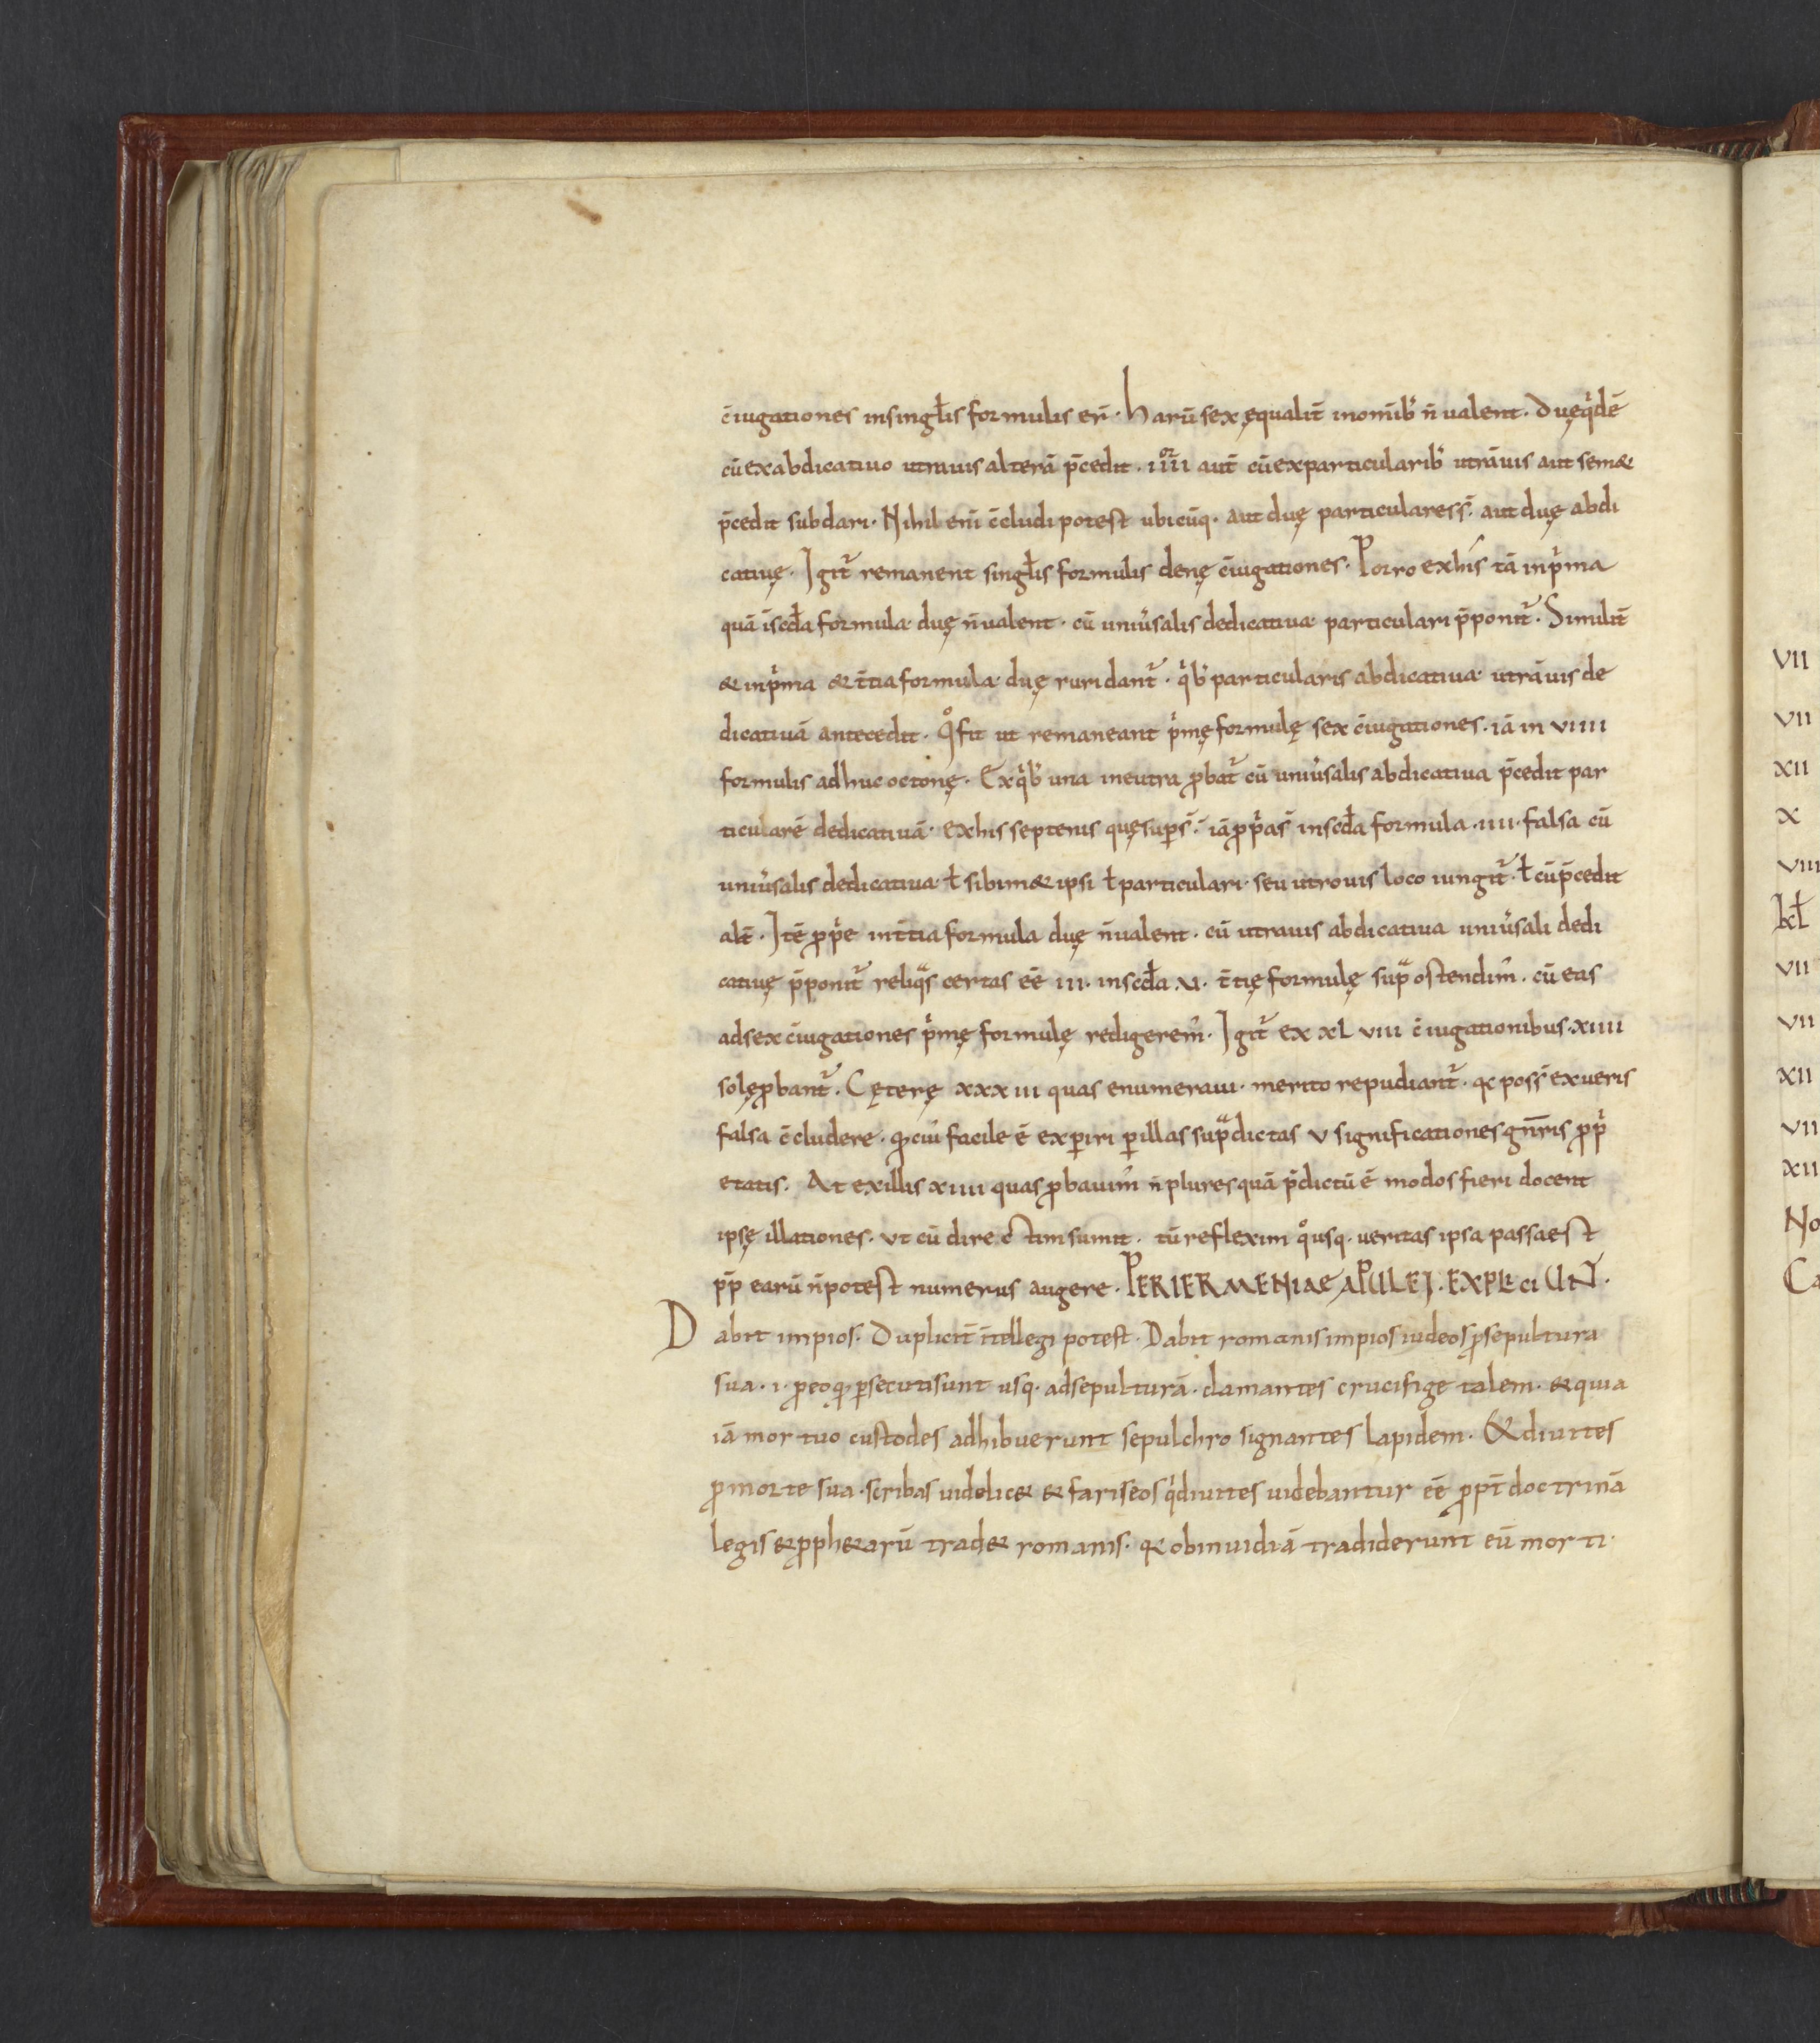 c̄iugationes insingłis formulis er̄. harū sex ęqualit̄ inomīb; n̄ ualent. Duęqͥdē
cū exabdicatiuo utrauis alterā p̄cedit. ıııı^or aut̄ cū exparticularib; utrāuis aut sem&
p̄cedit subdari. Nihil enī c̄cludi potest ubicūq. aut duę particularess̄. aut duę abdi
catiuę. Igit̄ remanent singłis formulis denę c̄iugationes. Porro exhis tā inpͥma
quā īscđa formula duę n̄ualent. cū uniůsalis dedicatiua particulari p̄ponit̄. Similit̄
& inpͥma & t̄tia formula duę rursdant̄. qͥb; particularis abdicatiua utrāuis de
dicatiuā antecedit. qͦ fit ut remaneant pͥmę formulę sex c̄iugationes. iā in vıııı
formulis adhuc octonę. Exqͥb; una ineutra ꝓbat̄ cū uniůsalis abdicatiua p̄cedit par
ticularē dedicatiuā. exhis septenis quęsuꝑs̄. iā ꝓpͥas̄ inscđa formula. ıııı. falsa cū
uniůsalis dedicatiua ł sibim& ipsi ł particulari. seu utrouis loco iungit̄. ł cū p̄cedit
alt̄. Itē ꝓpͥe int̄tia formula duę n̄ualent. cū utrauis abdicatiua uniůsali dedi
catiuę p̄ponit̄ reliqͣs certas eē ııı. inscđa. vı. t̄tię formulę supͣ ostendim̄. cū eas
adsex c̄iugationes pͥmę formulę redigerem̄. Igit̄ ex xL vııı c̄iugationibus. xıııı
solę ꝓbant̄. Cęterę xxx ııı quas enumeraui. merito repudiant̄. qc poss̄ exueris
falsa c̄cludere. qđ cuiů facile ē exꝑiri ꝑillas supͣdictas v significationes gn̄ris ꝓpͥ
etatis. At exillis xıııı quas ꝓbauim̄ n̄ pluresquā p̄dictū ē modos fieri docent
ipsę illationes. ut cū directim sumit. tū reflexim qͦusq. ueritas ipsa passaest
pp̄ earū n̄potest numerus augere. PERIERMENIAE APULEI. EXPLICIUNT.
Dabit impios. Duplicit̄ ītellegi potest. Dabit romanis impios iudeos ꝓsepultura
sua. ı. ꝓeoqđ ꝑsecutisunt usq. adsepulturā. clamantes crucifige talem. & quia
iā mortuo custodes adhibuerunt sepulchro signantes lapidem. & diuites
ꝓ morte sua. scribas uidelic& & fariseos qͥdiuites uidebantur eē ꝓpt̄ doctrinā
legis & ꝓph&arū trad& romanis. qc obinuidiā tradiderunt eū morti.
VII
VII
XII
X
VIII
kł
VII
VII
XII
VII
XII
No
Ca